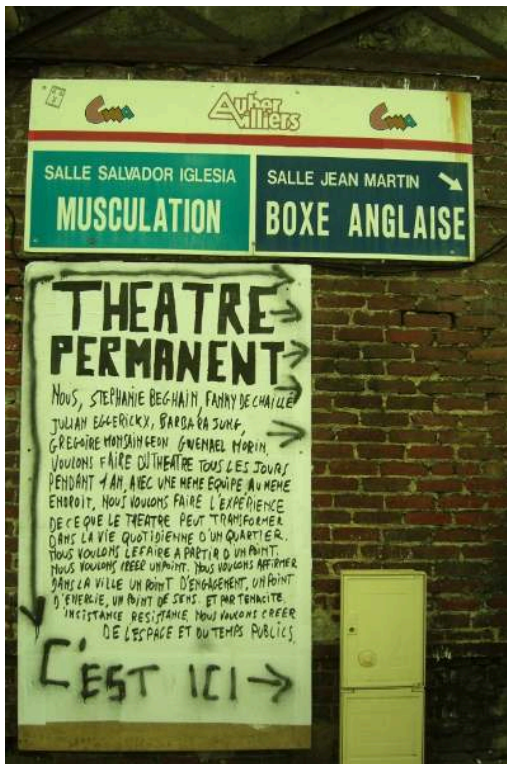 Cma
Auber
villiers
Cma
SALLE SALVADOR IGLESIA
MUSCULATION
SALLE JEAN MARTIN
BOXE ANGLAISE
THEATRE
PERMANENT
NOUS, STEPHANIE BEGHAIN, FANNY DE CHAILLE
JULIAN EGGERICKX, BARBARA JUNG,
GREGOIRE MONSAINGEON GWENAEL MORIN,
VOULONS FAIRE DU THEATRE TOUS LES JOURS
PENDANT 1 AN, AVEC UNE MEME EQUIPE AU MEME
ENDROIT, NOUS VOULONS FAIRE L'EXPERIENCE
DE CE QUE LE THEATRE PEUT TRANSFORMER
DANS LA VIE QUOTIDIENNE D'UN QUARTIER.
NOUS VOULONS LE FAIRE A PARTIR D'UN POINT.
NOUS VOULONS CREER UN POINT. NOUS VOULONS AFFIRMER
DANS LA VILLE UN POINT D'ENGAGEMENT, UN POINT
D'ENERGIE, UN POINT DE SENS. ET PAR TENACITE
INSISTANCE RESISTANCE, NOUS VOULONS CREER
DE L'ESPACE ET DU TEMPS PUBLICS.
C'EST ICI